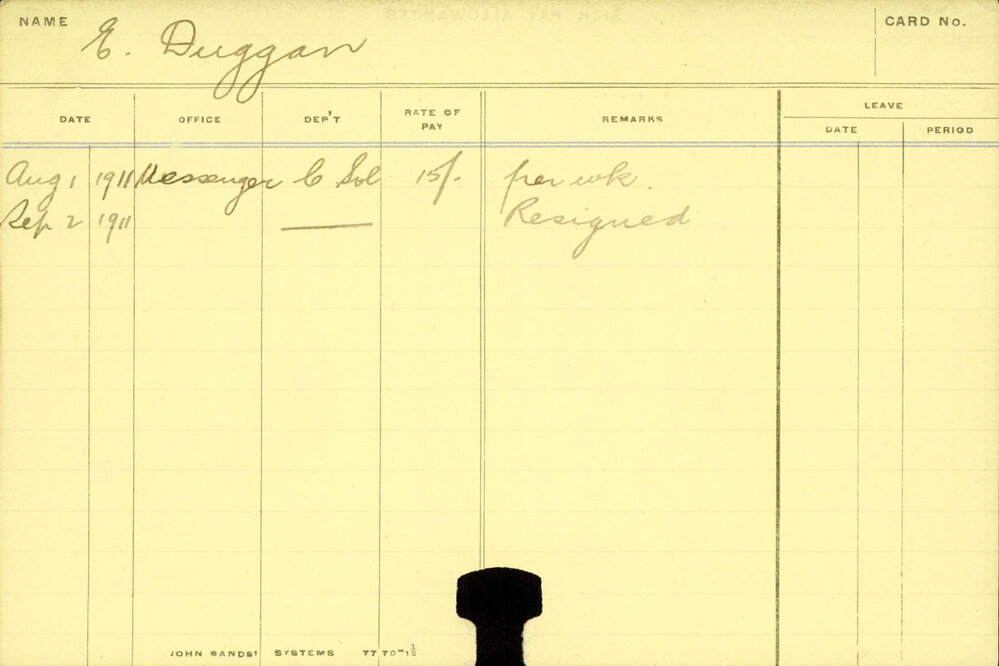 NAME E. Duggan CARD No.
DATE OFFICE DEP'T RATE OF PAY REMARKS LEAVE
DATE PERIOD
Aug 1 1911 Messenger C Sol 15/- per wk.
Sep 2 1911 —— Resigned
JOHN SANDS' SYSTEMS 77 70-½